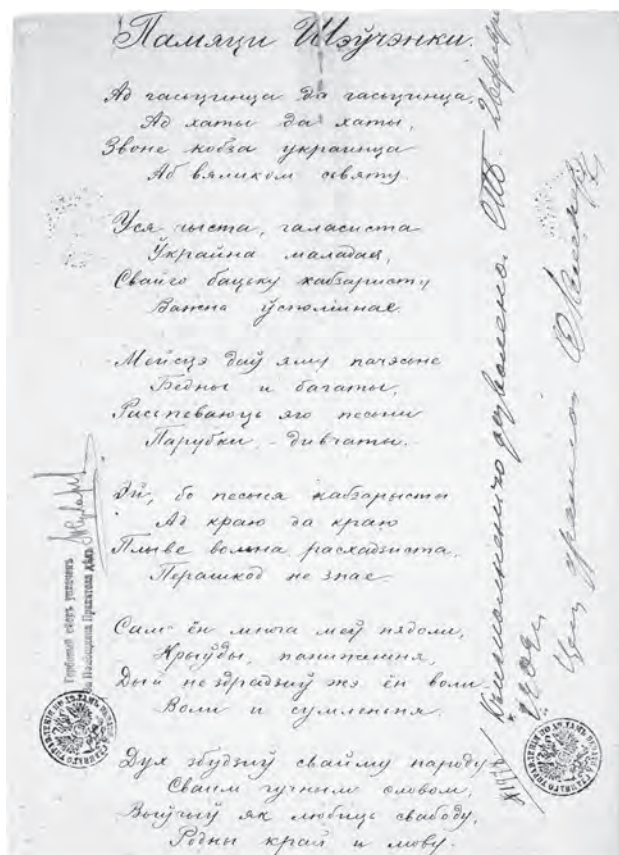 Памяци Шэўчэнки.
Ад гасьцинца да гасьцинца,
Ад хаты да хаты,
Звоне кобза украинца
Аб вяликом сьвяту.
Уся чыста, галасиста
Ўкрайна маладая,
Свайго бацьку кабзаристу
Важна ўспоминае.
Мейсцэ даў яму пачэснае
Бедны и багаты,
Расспеваюць яго песьни
Парубки, - дивчаты.
Эй, бо песьня кабзарысты
Ад краю да краю
Плыве вольна, расхадзиста,
Перашкод не знае
Сам ён многа меў нядоли,
Крыўды, паниженьня,
Дый не здрадзиў жэ ён воли
Воли и сумленьня.
Дух збудзиў свайму народу
Сваим гучным словом,
Выўчыў як любиць свабоду,
Родны край и мову.
Гербовый сборъ уплоченъ
К печатанію дозволено. СПб.
года